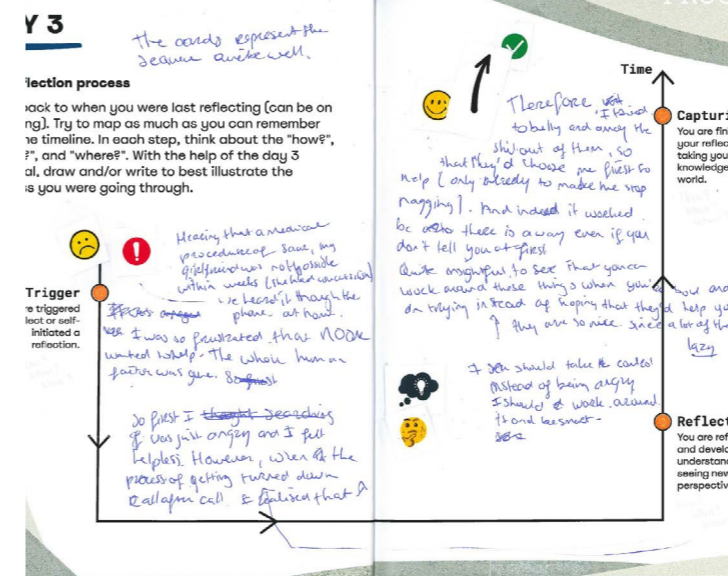 Y 3
the cards represent the
well.
flection process
back to when you were last reflecting (can be on
ng). Try to map as much as you can remember
he timeline. In each step, think about the "how?",
?", and "where?". With the help of the day 3
al, draw and/or write to best illustrate the
ss you were going through.
Hearing that a medical
procedure of some, my
girlfriend was not possible
within weeks (she had
i've heard it though the
phone at home.
Trigger
e triggered
lect or self-
initiated a
reflection.
I was so frustrated that NOOK
wanted to help. The whole human
factor was gone.
So first I thought searching
I was just angry and I felt
helpless. However, when the
process of getting turned down
call after call I realised that
Time
Therefore, I tried
to bully and annoy the
shit out of them, so
that they'd choose me first to
help (only already to make me stop
nagging). And indeed it worked.
there is a way even if you
don't tell you at first
Quite insightful, to see that you can
work around these things when you're and
on trying instead of hoping that they'd help yo
they are so nice. Since a lot of the
lazy
I should take the control
instead of being angry
I should work around
it and be smart.
Capturi
You are fin
your reflec
taking you
knowledge
world.
Reflect
You are ref
and develo
understan
seeing new
perspectiv